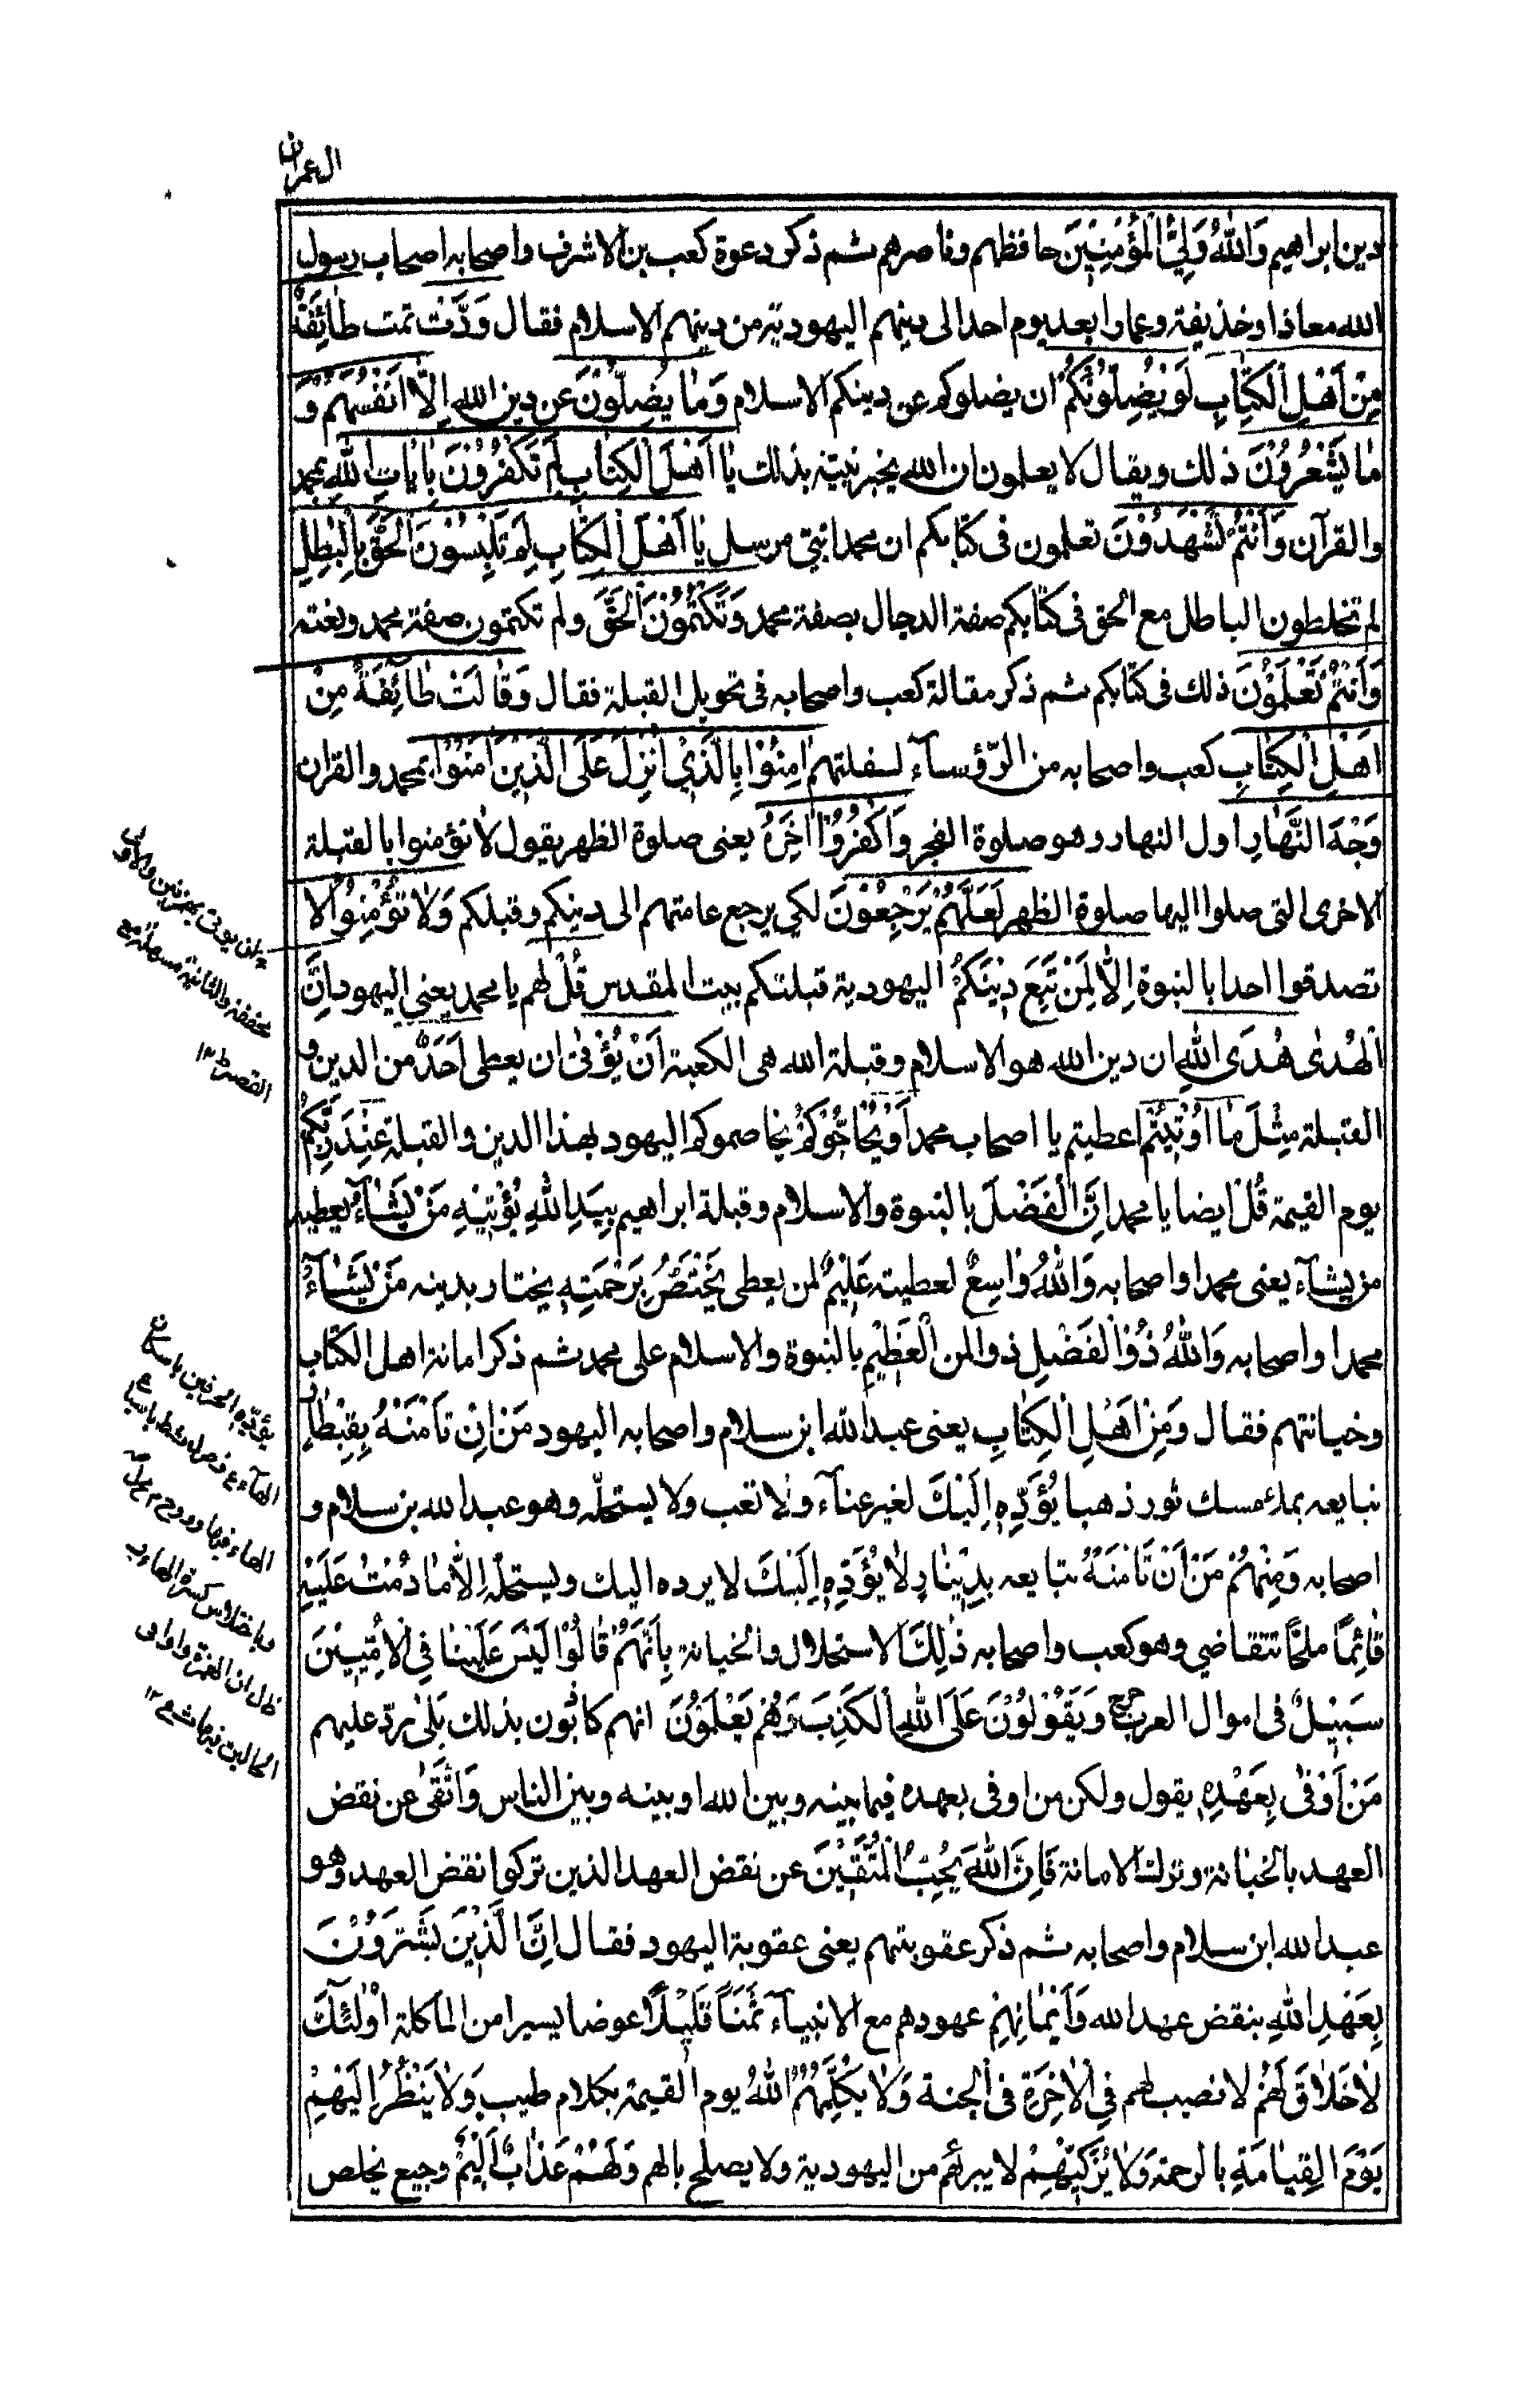 ال عمران
دين ابراهيم وَاللّٰهُ وَلِيُّ الْمُؤْمِنِيْنَ حافظهم وناصرهم ثم ذكر دعوة كعب بن الاشرف واصحابه اصحاب رسول
الله معاذا وحذيفة وعمارا بعد يوم احد الى دينهم اليهودية من دينهم الاسلام فقال وَدَّتْ تمت طَائِفَةٌ
مِنْ اَهْلِ الْكِتَابِ لَوْ يُضِلُّوْنَكُمْ ان يضلوكم عن دينكم الاسلام وَمَا يُضِلُّوْنَ عن دين الله اِلَّا اَنْفُسَهُمْ وَ
مَا يَشْعُرُوْنَ ذلك ويقال لا يعلمون ان الله يخبر نبيه بذلك يَا اَهْلَ الْكِتَابِ لِمَ تَكْفُرُوْنَ بِاٰيَاتِ اللّٰهِ بمحمد
والقرآن وَاَنْتُمْ تَشْهَدُوْنَ تعلمون فى كتابكم ان محمدا نبي مرسل يَا اَهْلَ الْكِتَابِ لِمَ تَلْبِسُوْنَ الْحَقَّ بِالْبٰطِلِ
لم تخلطون الباطل مع الحق فى كتابكم صفة الدجال بصفة محمد وَتَكْتُمُوْنَ الْحَقَّ ولم تكتمون صفة محمد ونعته
وَاَنْتُمْ تَعْلَمُوْنَ ذلك فى كتابكم ثم ذكر مقالة كعب واصحابه فى تحويل القبلة فقال وَقَالَتْ طَآئِفَةٌ مِنْ
اَهْلِ الْكِتَابِ كعب واصحابه من الرؤسآء لسفلتهم اٰمِنُوْا بِالَّذِيْ اُنْزِلَ عَلَى الَّذِيْنَ اٰمَنُوْا بمحمد والقران
وَجْهَ النَّهَارِ اول النهار وهو صلوة الفجر وَاكْفُرُوْا اٰخِرَهُ يعنى صلوة الظهر يقول لا نؤمنوا بالقبلة
الاخرى التى صلوا اليها صلوة الظهر لَعَلَّهُمْ يَرْجِعُوْنَ لكي يرجع عامتهم الى دينكم وقبلكم وَلَا تُؤْمِنُوْا لا
تصدقوا احدا بالنبوة اِلَّا لِمَنْ تَبِعَ دِيْنَكُمْ اليهودية قبلتكم بيت المقدس قُلْ لهم يا محمد يعني اليهود اِنَّ
الْهُدٰى هُدَى اللّٰهِ ان دين الله هو الاسلام وقبلة الله هى الكعبة اَنْ يُؤْتٰى ان يعطى اَحَدٌ من الدين و
القبلة مِثْلَ مَا اُوْتِيْتُمْ اعطيتم يا اصحاب محمد اَوْ يُحَاجُّوْكُمْ يخاصموكم اليهود بهذا الدين والقبلة عِنْدَ رَبِّكُمْ
يوم القيمة قُلْ ايضا يا محمد اِنَّ الْفَضْلَ بالنبوة والاسلام وقبلة ابراهيم بِيَدِ اللّٰهِ يُؤْتِيْهِ مَنْ يَشَآءُ يعطيه
من يشآء يعنى محمدا واصحابه وَاللّٰهُ وَاسِعٌ لعطيته عَلِيْمٌ لمن يعطى يَخْتَصُّ بِرَحْمَتِهٖ يختار بدينه مَنْ يَشَآءُ
محمدا واصحابه وَاللّٰهُ ذُوْ الْفَضْلِ ذو المن الْعَظِيْمِ بالنبوة والاسلام على محمد ثم ذكر امانة اهل الكتاب
وخيانتهم فقال وَمِنْ اَهْلِ الْكِتَابِ يعنى عبد الله ابن سلام واصحابه اليهود مَنْ اِنْ تَأْمَنْهُ بِقِنْطَارٍ
نبايعه بملء مسك ثور ذهبا يُؤَدِّهٖ اِلَيْكَ لغير عنآء ولا تعب ولا يستحلّه وهو عبد الله بن سلام و
اصحابه وَمِنْهُمْ مَنْ اَنْ تَأْمَنْهُ تبايعه بِدِيْنَارٍ لَا يُؤَدِّهٖ اِلَيْكَ لا يرده اليك ويستحلّه اِلَّا مَا دُمْتَ عَلَيْهِ
قَائِمًا ملحًّا تتقاضى وهو كعب واصحابه ذٰلِكَ الاستحلال والخيانة بِاَنَّهُمْ قَالُوْا لَيْسَ عَلَيْنَا فِي الْاُمِّيِّيْنَ
سَبِيْلٌ فى اموال العرب حرج وَيَقُوْلُوْنَ عَلَى اللّٰهِ الْكَذِبَ وَهُمْ يَعْلَمُوْنَ انهم كاذبون بذلك بَلٰى ردّ عليهم
مَنْ اَوْفٰى بِعَهْدِهٖ يقول ولكن من اوفى بعهده فيما بينه وبين الله او بينه وبين الناس وَاتَّقٰى عن نقض
العهد بالخيانة وترك الامانة فَاِنَّ اللّٰهَ يُحِبُّ الْمُتَّقِيْنَ عن نقض العهد الذين تركوا نقض العهد وهو
عبد الله ابن سلام واصحابه ثم ذكر عقوبتهم يعنى عقوبة اليهود فقال اِنَّ الَّذِيْنَ يَشْتَرُوْنَ
بِعَهْدِ اللّٰهِ بنقض عهد الله وَاَيْمَانِهِمْ عهودهم مع الانبيآء ثَمَنًا قَلِيْلًا عوضا يسيرا من الماكلة اُوْلٰئِكَ
لَا خَلَاقَ لَهُمْ لا نصيب لهم فِي الْاٰخِرَةِ فى الجنة وَلَا يُكَلِّمُهُمُ اللّٰهُ يوم القيمة بكلام طيب وَلَا يَنْظُرُ اِلَيْهِمْ
يَوْمَ الْقِيَامَةِ بالرحمة وَلَا يُزَكِّيْهِمْ لا يبرئهم من اليهودية ولا يصلح بالهم وَلَهُمْ عَذَابٌ اَلِيْمٌ وجيع يخلص
ان يوتى بهمزتين والاولى
مخففة والثانية مسهلة مع
القصر ط ١٢
يؤدّه الحرفين باسكان